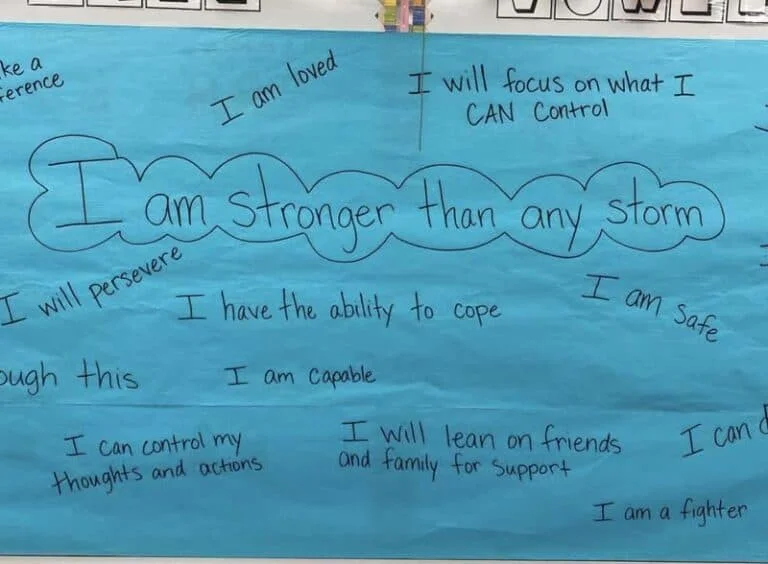 ke a
ference
I am loved
I will focus on what I
CAN Control
I am stronger than any storm
I will persevere
I have the ability to cope
I am safe
ough this
I am capable
I can control my
thoughts and actions
I will lean on friends
and family for support
I can d
I am a fighter